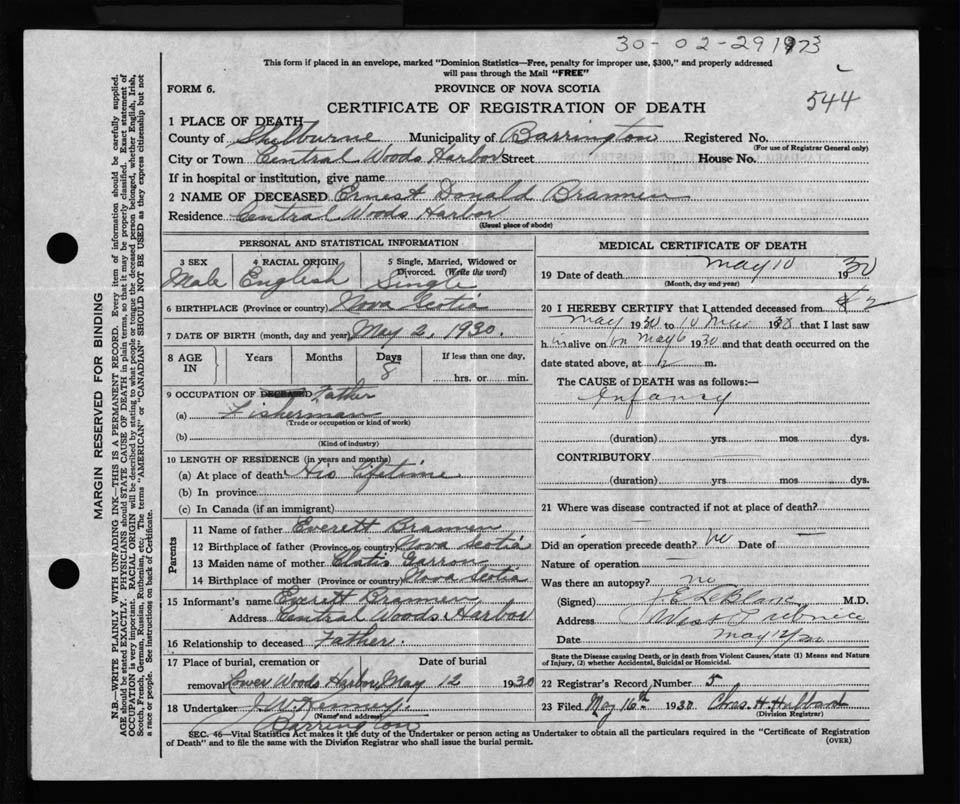 30-02-291973
This form if placed in an envelope, marked "Dominion Statistics—Free, penalty for improper use, $300," and properly addressed
will pass through the Mail "FREE"
FORM 6.
PROVINCE OF NOVA SCOTIA
544
CERTIFICATE OF REGISTRATION OF DEATH
1 PLACE OF DEATH
County of Shelburne Municipality of Barrington Registered No.
(For use of Registrar General only)
City or Town Central Woods Harbor Street House No.
If in hospital or institution, give name
2 NAME OF DECEASED Ernest Donald Brannen
Residence Central Woods Harbor
(Usual place of abode)
PERSONAL AND STATISTICAL INFORMATION
3 SEX 4 RACIAL ORIGIN 5 Single, Married, Widowed or
Divorced. (Write the word)
Male English Single
6 BIRTHPLACE (Province or country) Nova Scotia
7 DATE OF BIRTH (month, day and year) May 2, 1930.
8 AGE IN Years Months Days If less than one day,
8 hrs. or min.
9 OCCUPATION OF DECEASED Father
(a) Fisherman
(Trade or occupation or kind of work)
(b)
(Kind of industry)
10 LENGTH OF RESIDENCE (in years and months)
(a) At place of death His lifetime
(b) In province
(c) In Canada (if an immigrant)
Parents
11 Name of father Everett Brannen
12 Birthplace of father (Province or country) Nova Scotia
13 Maiden name of mother
14 Birthplace of mother (Province or country) Nova Scotia
15 Informant's name Everett Brannen
Address Central Woods Harbor
16 Relationship to deceased Father.
17 Place of burial, cremation or Date of burial
removal Lower Woods Harbor May 12 1930
18 Undertaker J.W. Kenney.
(Name and address)
Barrington
MEDICAL CERTIFICATE OF DEATH
19 Date of death May 10 1930
(Month, day and year)
20 I HEREBY CERTIFY that I attended deceased from 2
May 1930 to 10 1930 that I last saw
h alive on May 6 1930 and that death occurred on the
date stated above, at 12 m.
The CAUSE of DEATH was as follows:—
Infancy
(duration) yrs mos dys.
CONTRIBUTORY
(duration) yrs. mos dys.
21 Where was disease contracted if not at place of death?
Did an operation precede death? No Date of —
Nature of operation —
Was there an autopsy? no
(Signed) J E LeBlanc M.D.
Address West Pubnico
Date May 12/30
State the Disease causing Death, or in death from Violent Causes, state (1) Means and Nature
of Injury, (2) whether Accidental, Suicidal or Homicidal.
22 Registrar's Record Number 5
23 Filed May 16th 1930 Chas. H. Hubbard
(Division Registrar)
SEC. 46—Vital Statistics Act makes it the duty of the Undertaker or person acting as Undertaker to obtain all the particulars required in the "Certificate of Registration
of Death" and to file the same with the Division Registrar who shall issue the burial permit.
(OVER)
MARGIN RESERVED FOR BINDING
N.B.—WRITE PLAINLY WITH UNFADING INK—THIS IS A PERMANENT RECORD. Every item of information should be carefully supplied.
AGE should be stated EXACTLY. PHYSICIANS should STATE CAUSE OF DEATH in plain terms, so that it may be properly classified. Exact statement of
OCCUPATION is very important. RACIAL ORIGIN will be described by stating to what people or tongue the deceased person belonged, whether English, Irish,
Scotch, French, German, Russian, Ruthenian, etc. The terms "AMERICAN" or "CANADIAN" SHOULD NOT BE USED as they express citizenship but not
a race or people. See instructions on back of Certificate.